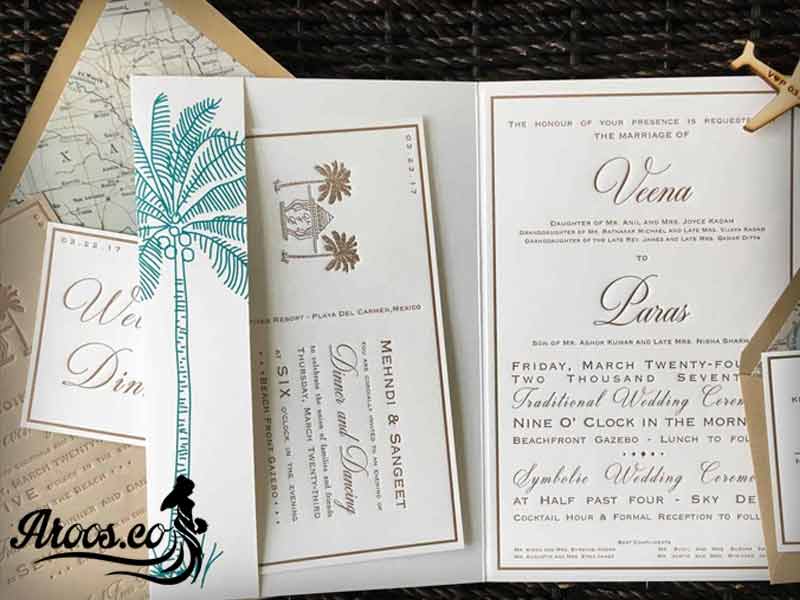 V♥P 03
THE HONOUR OF YOUR PRESENCE IS REQUESTE
THE MARRIAGE OF
Veena
DAUGHTER OF MR. ANIL AND MRS. JOYCE KADAM
GRANDDAUGHTER OF MR. RATNAKAR MICHAEL AND LATE MRS. VIJAYA KADAM
GRANDDAUGHTER OF THE LATE REV. JAMES AND LATE MRS. QAMAR DITTA
TO
Paras
SON OF MR. ASHOK KUMAR AND LATE MRS. NISHA SHARM
FRIDAY, MARCH TWENTY-FOU
TWO THOUSAND SEVENT
Traditional Wedding Cerem
NINE O' CLOCK IN THE MORN
BEACHFRONT GAZEBO - LUNCH TO FOLL
Symbolic Wedding Ceremo
AT HALF PAST FOUR - SKY DE
COCKTAIL HOUR & FORMAL RECEPTION TO FOLL
BEST COMPLIMENTS
03.23.17
RESORT - PLAYA DEL CARMEN, MEXICO
MEHNDI & SANGEET
YOU ARE CORDIALLY INVITED TO AN EVENING OF
Dinner and Dancing
to celebrate the union of families and friends
THURSDAY, MARCH TWENTY-THIRD
AT SIX O'CLOCK IN THE EVENING
BEACH FRONT GAZEBO
03.22.17
Wel
Din
Aroos.co